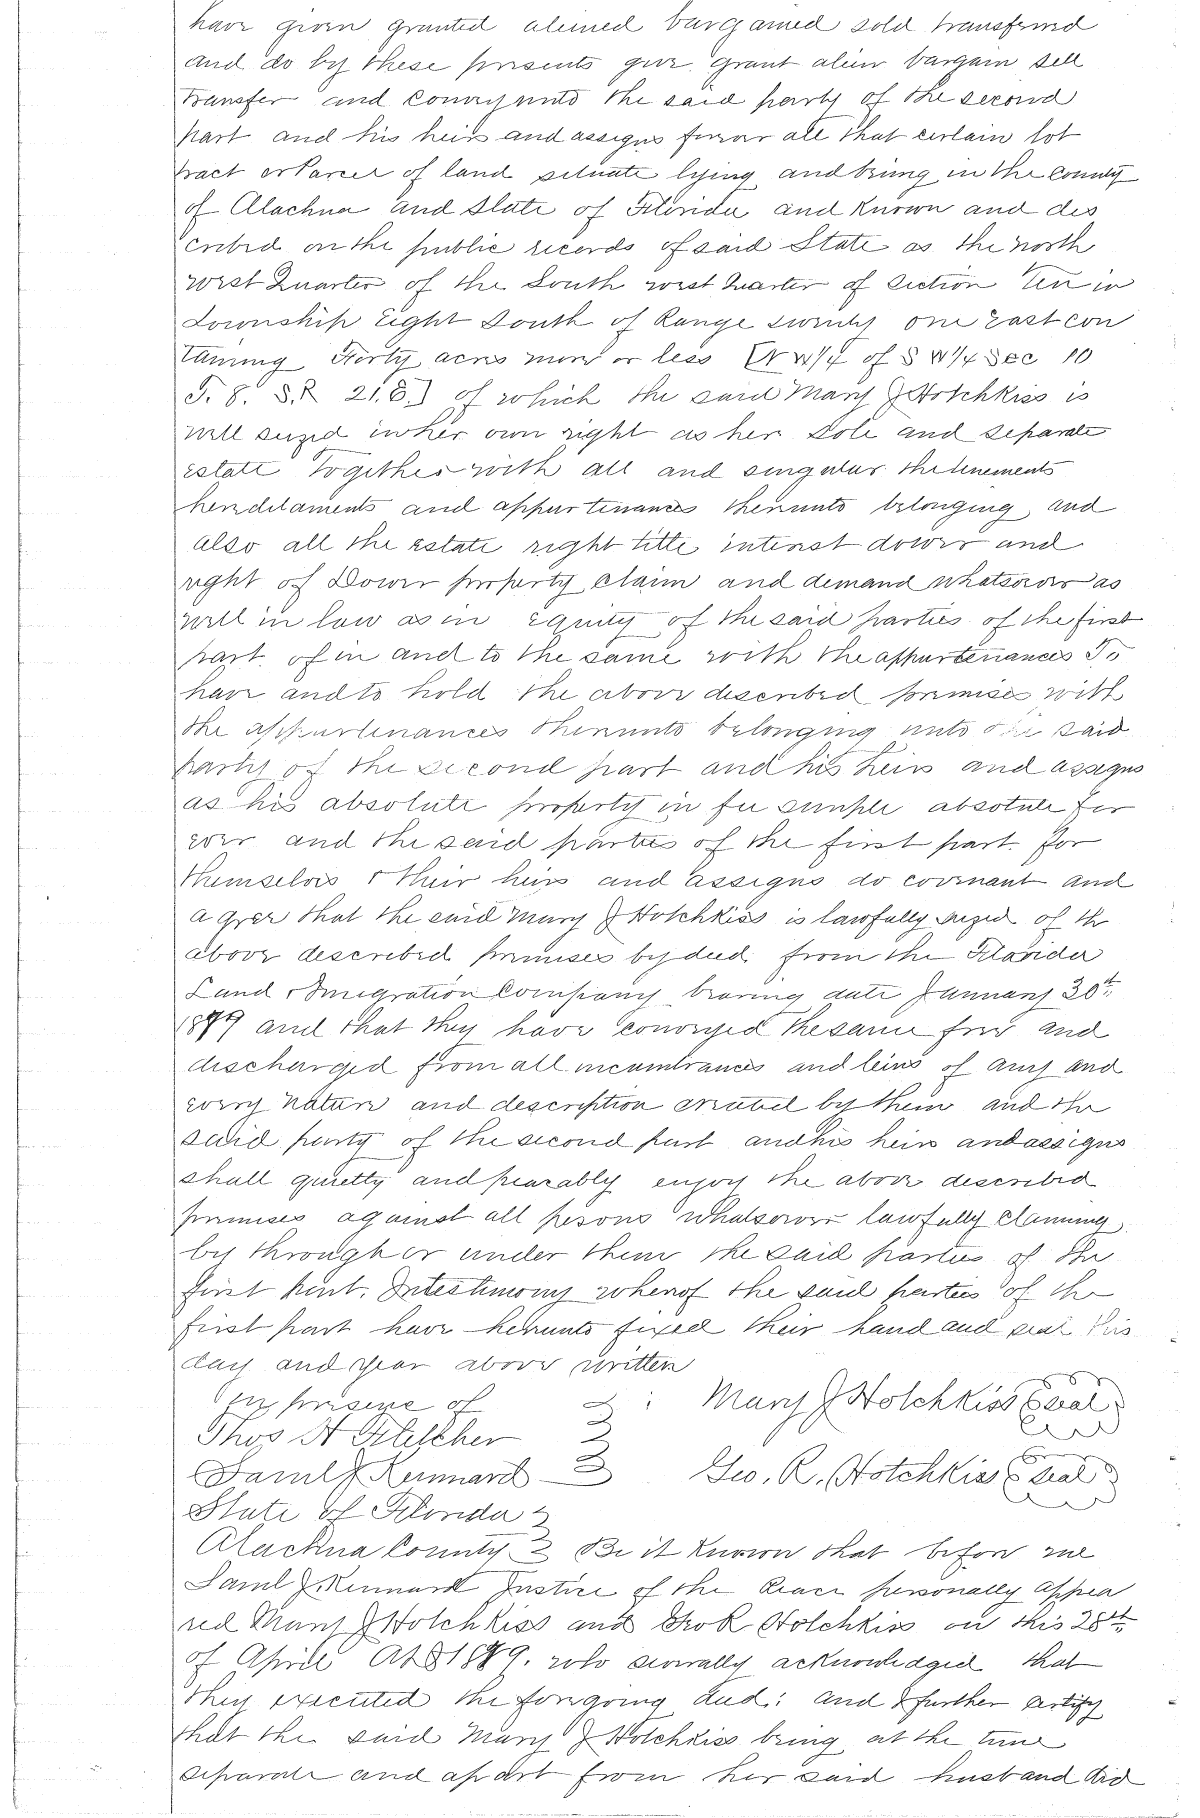 have given granted aliened bargained sold transferred
and do by these presents give grant alien bargain sell
transfer and convey unto the said party of the second
part and his heirs and assigns forever all that certain lot
tract or Parcel of land situate lying and being in the County
of Alachua and State of Florida and Known and des
cribed on the public records of said State as the north
west Quarter of the South west Quarter of Section Ten in
Township Eight South of Range twenty one East con
taining Forty acres more or less [N W 1/4 of S W 1/4 Sec 10
T. 8. S. R 21. E.] of which the said Mary J Hotchkiss is
well seized in her own right as her Sole and separate
estate Together with all and singular the tenements
hereditaments and appurtenances thereunto belonging and
also all the estate right title interest dower and
right of Dower property claim and demand whatsoever as
well in law as in Equity of the said parties of the first
part of in and to the same with the appurtenances To
have and to hold the above described premises with
the appurtenances thereunto belonging unto the said
party of the second part and his heirs and assigns
as his absolute property in fee simple absolute for
ever and the said parties of the first part for
themselves & their heirs and assigns do covenant and
agree that the said Mary J Hotchkiss is lawfully seized of the
above described premises by deed from the Florida
Land & Imigration Company bearing date January 30th
1889 and that they have conveyed the same free and
discharged from all incumbrances and leins of any and
every nature and description created by them and the
said party of the second part and his heirs and assigns
shall quietly and peacably enjoy the above described
premises against all pesons whatsoever lawfully claiming
by through or under them the said parties of the
first part. In testimony whereof the said parties of the
first part have hereunto fixed their hand and seal this
day and year above written
In presence of : Mary J Hotchkiss (Seal)
Thos H Fletcher
Saml J Kennard Geo. R. Hotchkiss (Seal)
State of Florida
Alachua County Be it Known that before me
Saml J. Kennard Justice of the Peace personally appea
red Mary J Hotchkiss and Geo R Hotchkiss on this 28th
of April AD 1889. who severally acknowledged that
they executed the foregoing deed: and I further certify
that the said Mary J Hotchkiss being at the time
separate and apart from her said husband did